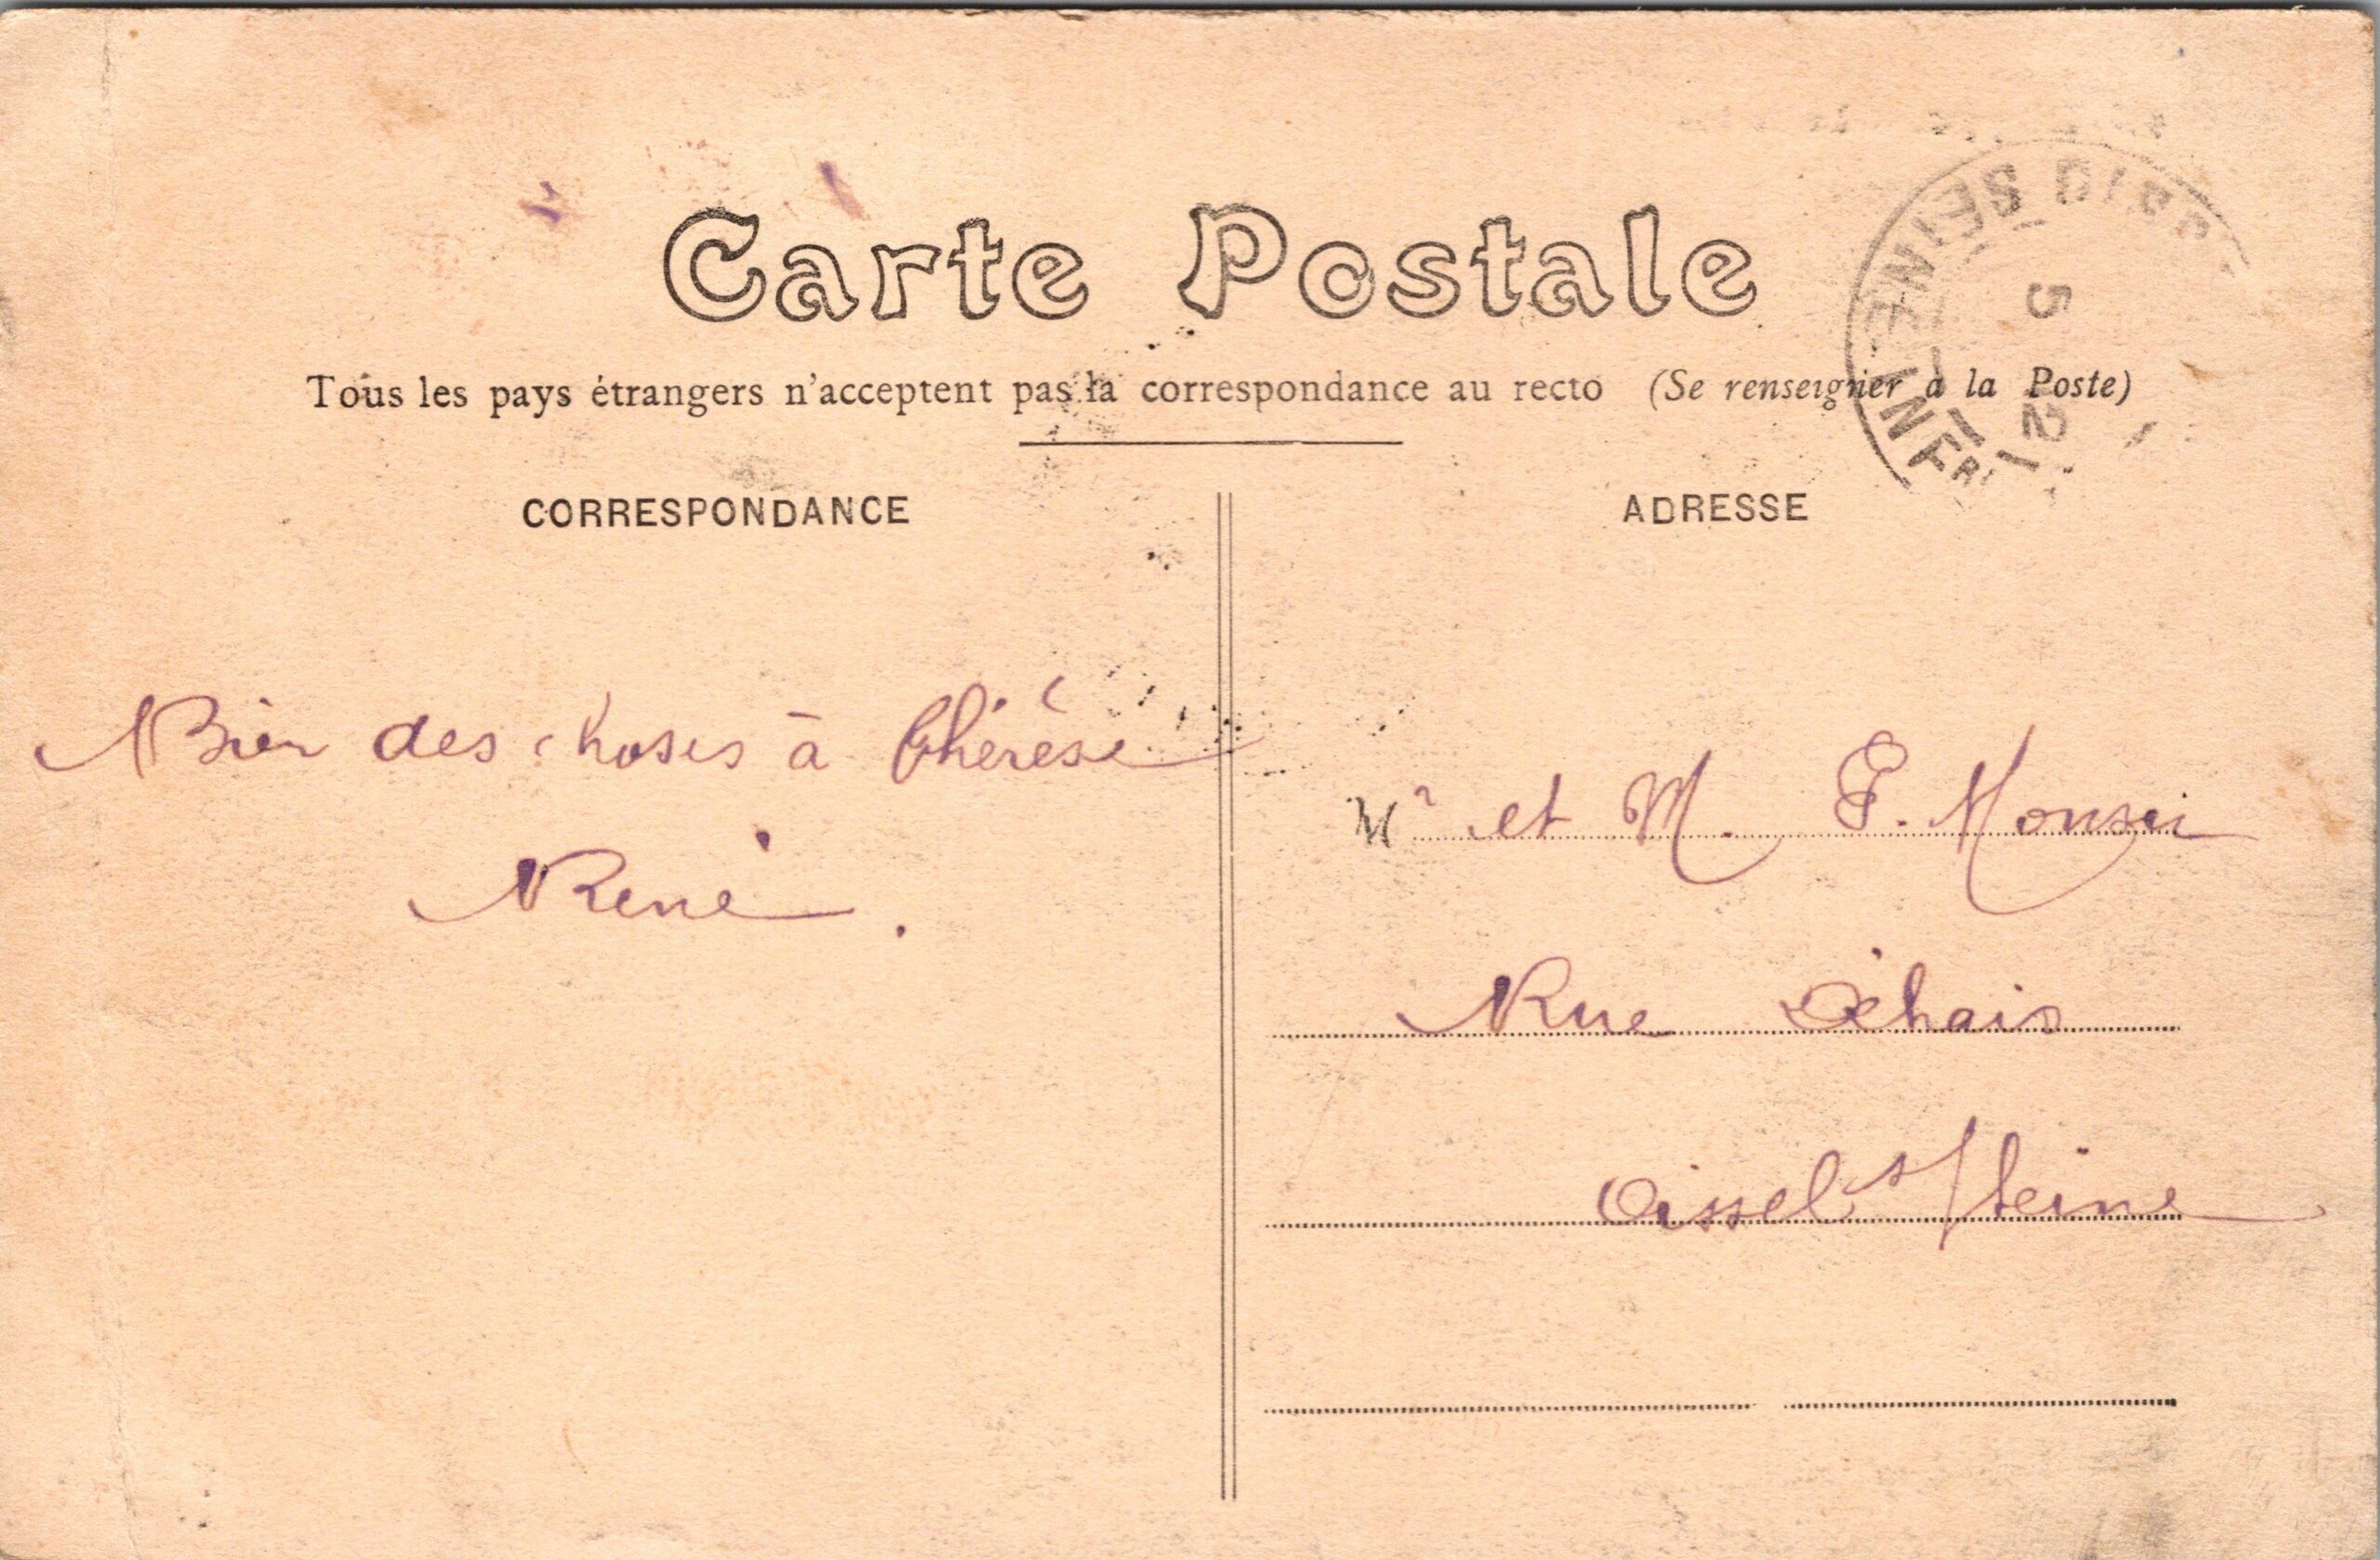 Carte Postale
Tous les pays étrangers n'acceptent pas la correspondance au recto (Se renseigner à la Poste)
CORRESPONDANCE
ADRESSE
Bien des choses à Thérèse
René.
Mr et M. Monsei
Rue Dehais
Oissel s/Seine
SEINE INFRE
5
12